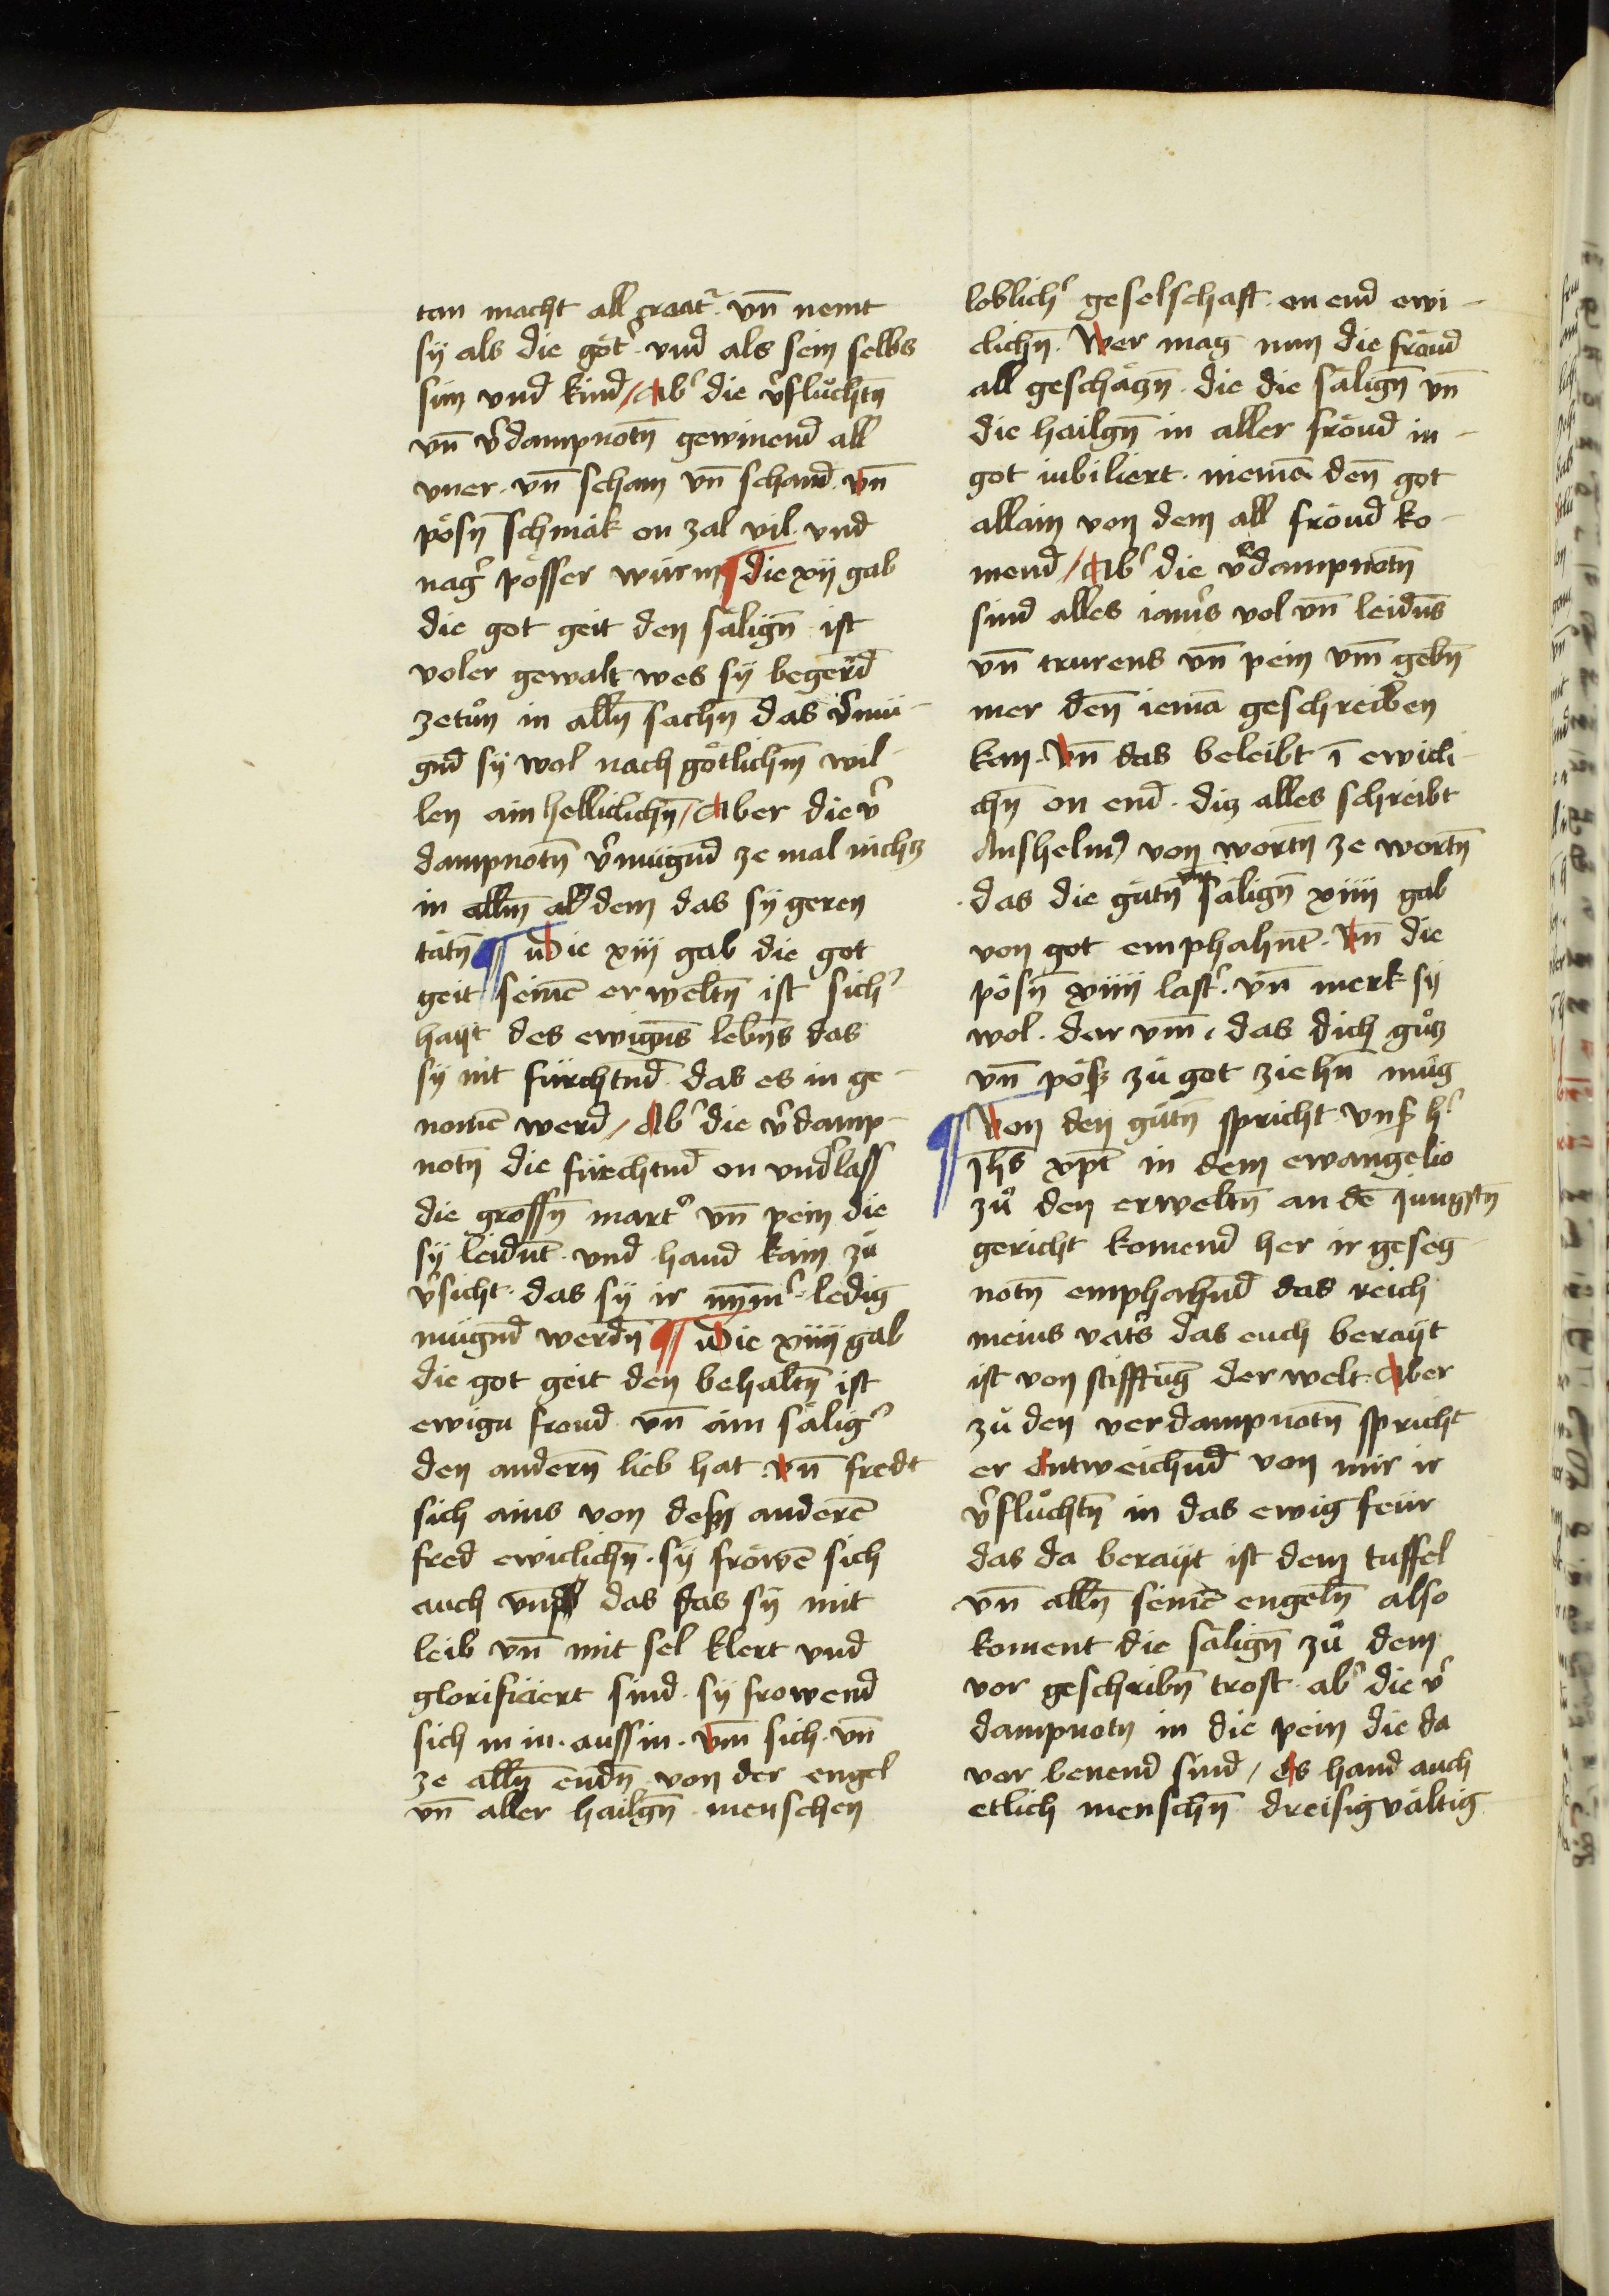 tan macht all creatᷣ vn̄ nemt
sÿ als die götᷣ · vnd als sein selbs
sun vnd kind / Abᷣ die v̉fluͦchtn̄
vn̄ v̉dampnotn̄ gewinend all
vner · vn̄ scham vn̄ schand · vn̄
pösn̄ schmäk on zal vil · vnd
nagᷣ pösser würm ¶ die xij gab
die got geit den sälign̄ ist
voler gewalt wes sÿ begerd
zetuͦn in alln̄ sachn̄ das v̉mü-
gnd sÿ wol nach götlichm̄ wil-
len ain helliclichn̄ / Aber die v̉
dampnotn̄ v̉mugnd ze mal nichtz
in allm̄ all dem das sÿ geren
tätn̄ ¶ Die xiij gab die got
geit seinē erweltn̄ ist sichᷣ-
hayt des ewign̄s lebn̄s das
sÿ nit fürchtnd · das es in ge-
nomē werd / Abᷣ die v̉damp-
notn̄ die fürchtnd on vnd̉lass
die grossn̄ martᷣ vn̄ pein die
sÿ leidnt · vnd hand kain zuͦ
v̉sicht · das sÿ ir nym̄ᷣ ledig
mügnd werdn̄ ¶ Die xiiij gab
die got geit den behaltn̄ ist
ewigu froud · vn̄ ain säligᷣ
den andern̄ lieb hat · vn̄ fredt
sich ains von des anderē
fred ewiclichn̄ · sÿ fröwē sich
auch vmb das das sÿ mit
leib vn̄ mit sel klert vnd
glorificiert sind · sÿ frowend
sich in in · auss in · vm̄ sich · vn̄
ze alln̄ endn̄ von der engel
vn̄ aller hailgn̄ menschen
loblichᷣ geselschaft · on end ewi-
clichn̄ · Wer mag nun die fröud
all geschätzn̄ · die die sälign̄ vn̄
die hailgn̄ in aller fröud in-
got iubiliert · niemā den̄ got
allain von dem all fröud ko-
mend / Abᷣ die v̉dampnotn̄
sind alles iamᷣs vol vn̄ leidn̄s
vn̄ trurens vn̄ pein vm̄gebn̄
mer den̄ iemā geschreiben
kan · Vn̄ das beleibt ī ewicli-
chn̄ on end · diz alles schreibt
Anshelmꝰ von wortn̄ ze wortn̄
· das die gütn̄ vn̄ sälign̄ xiiij gab
von got emphahnt · Vn̄ die
pösn̄ xiiij lastᷣ · vn̄ merk sÿ
wol · dar vm̄ · das dich guͦtz
vn̄ pösz zuͦ got ziehn̄ müg
¶ Von den gütn̄ spricht vnsᷣ hᷣ
jhs̄ xp̄t in dem ewangelio
zuͦ den erweltn̄ an dē jungstn̄
gericht komend her ir geseg-
notn̄ emphahnd das reich
meins vatᷣs das euch berayt
ist von stifftung der welt · Aber
zuͦ den verdampnotn̄ spricht
er entweichnd von mir ir
v̉fluͦchtn̄ in das ewig feür
das da berayt ist dem tuffel
vn̄ alln̄ seinē engeln̄ also
koment die sälign̄ zuͦ dem
vor geschribn̄ trost · abᷣ die v̉
dampnotn̄ in die pein die da
vor benend sind / es hand auch
etlich menschn̄ dreisigvältig